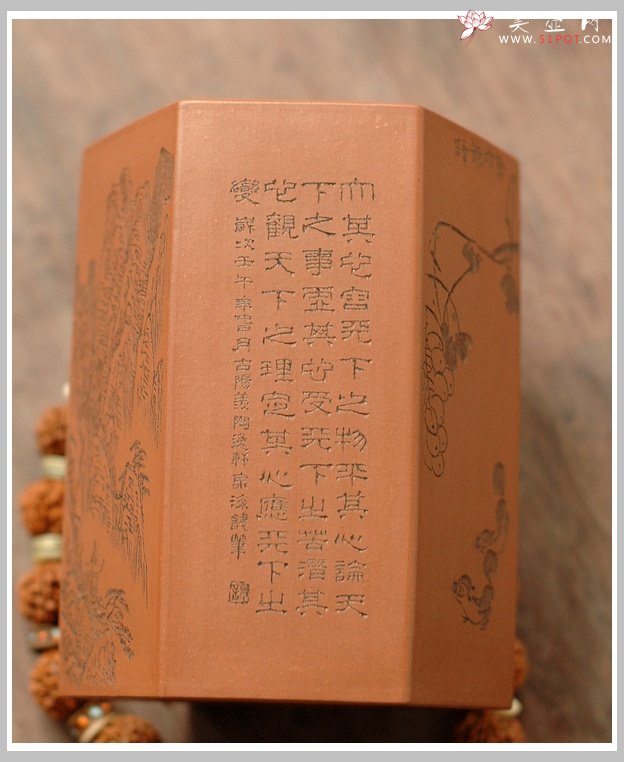 美壶网
WWW.51POT.COM
大其心容天下之物平其心論天
下之事虛其心受天下之善潛其
心觀天下之理定其心應天下之
變 歲次壬午年月古陽羨陶逸軒